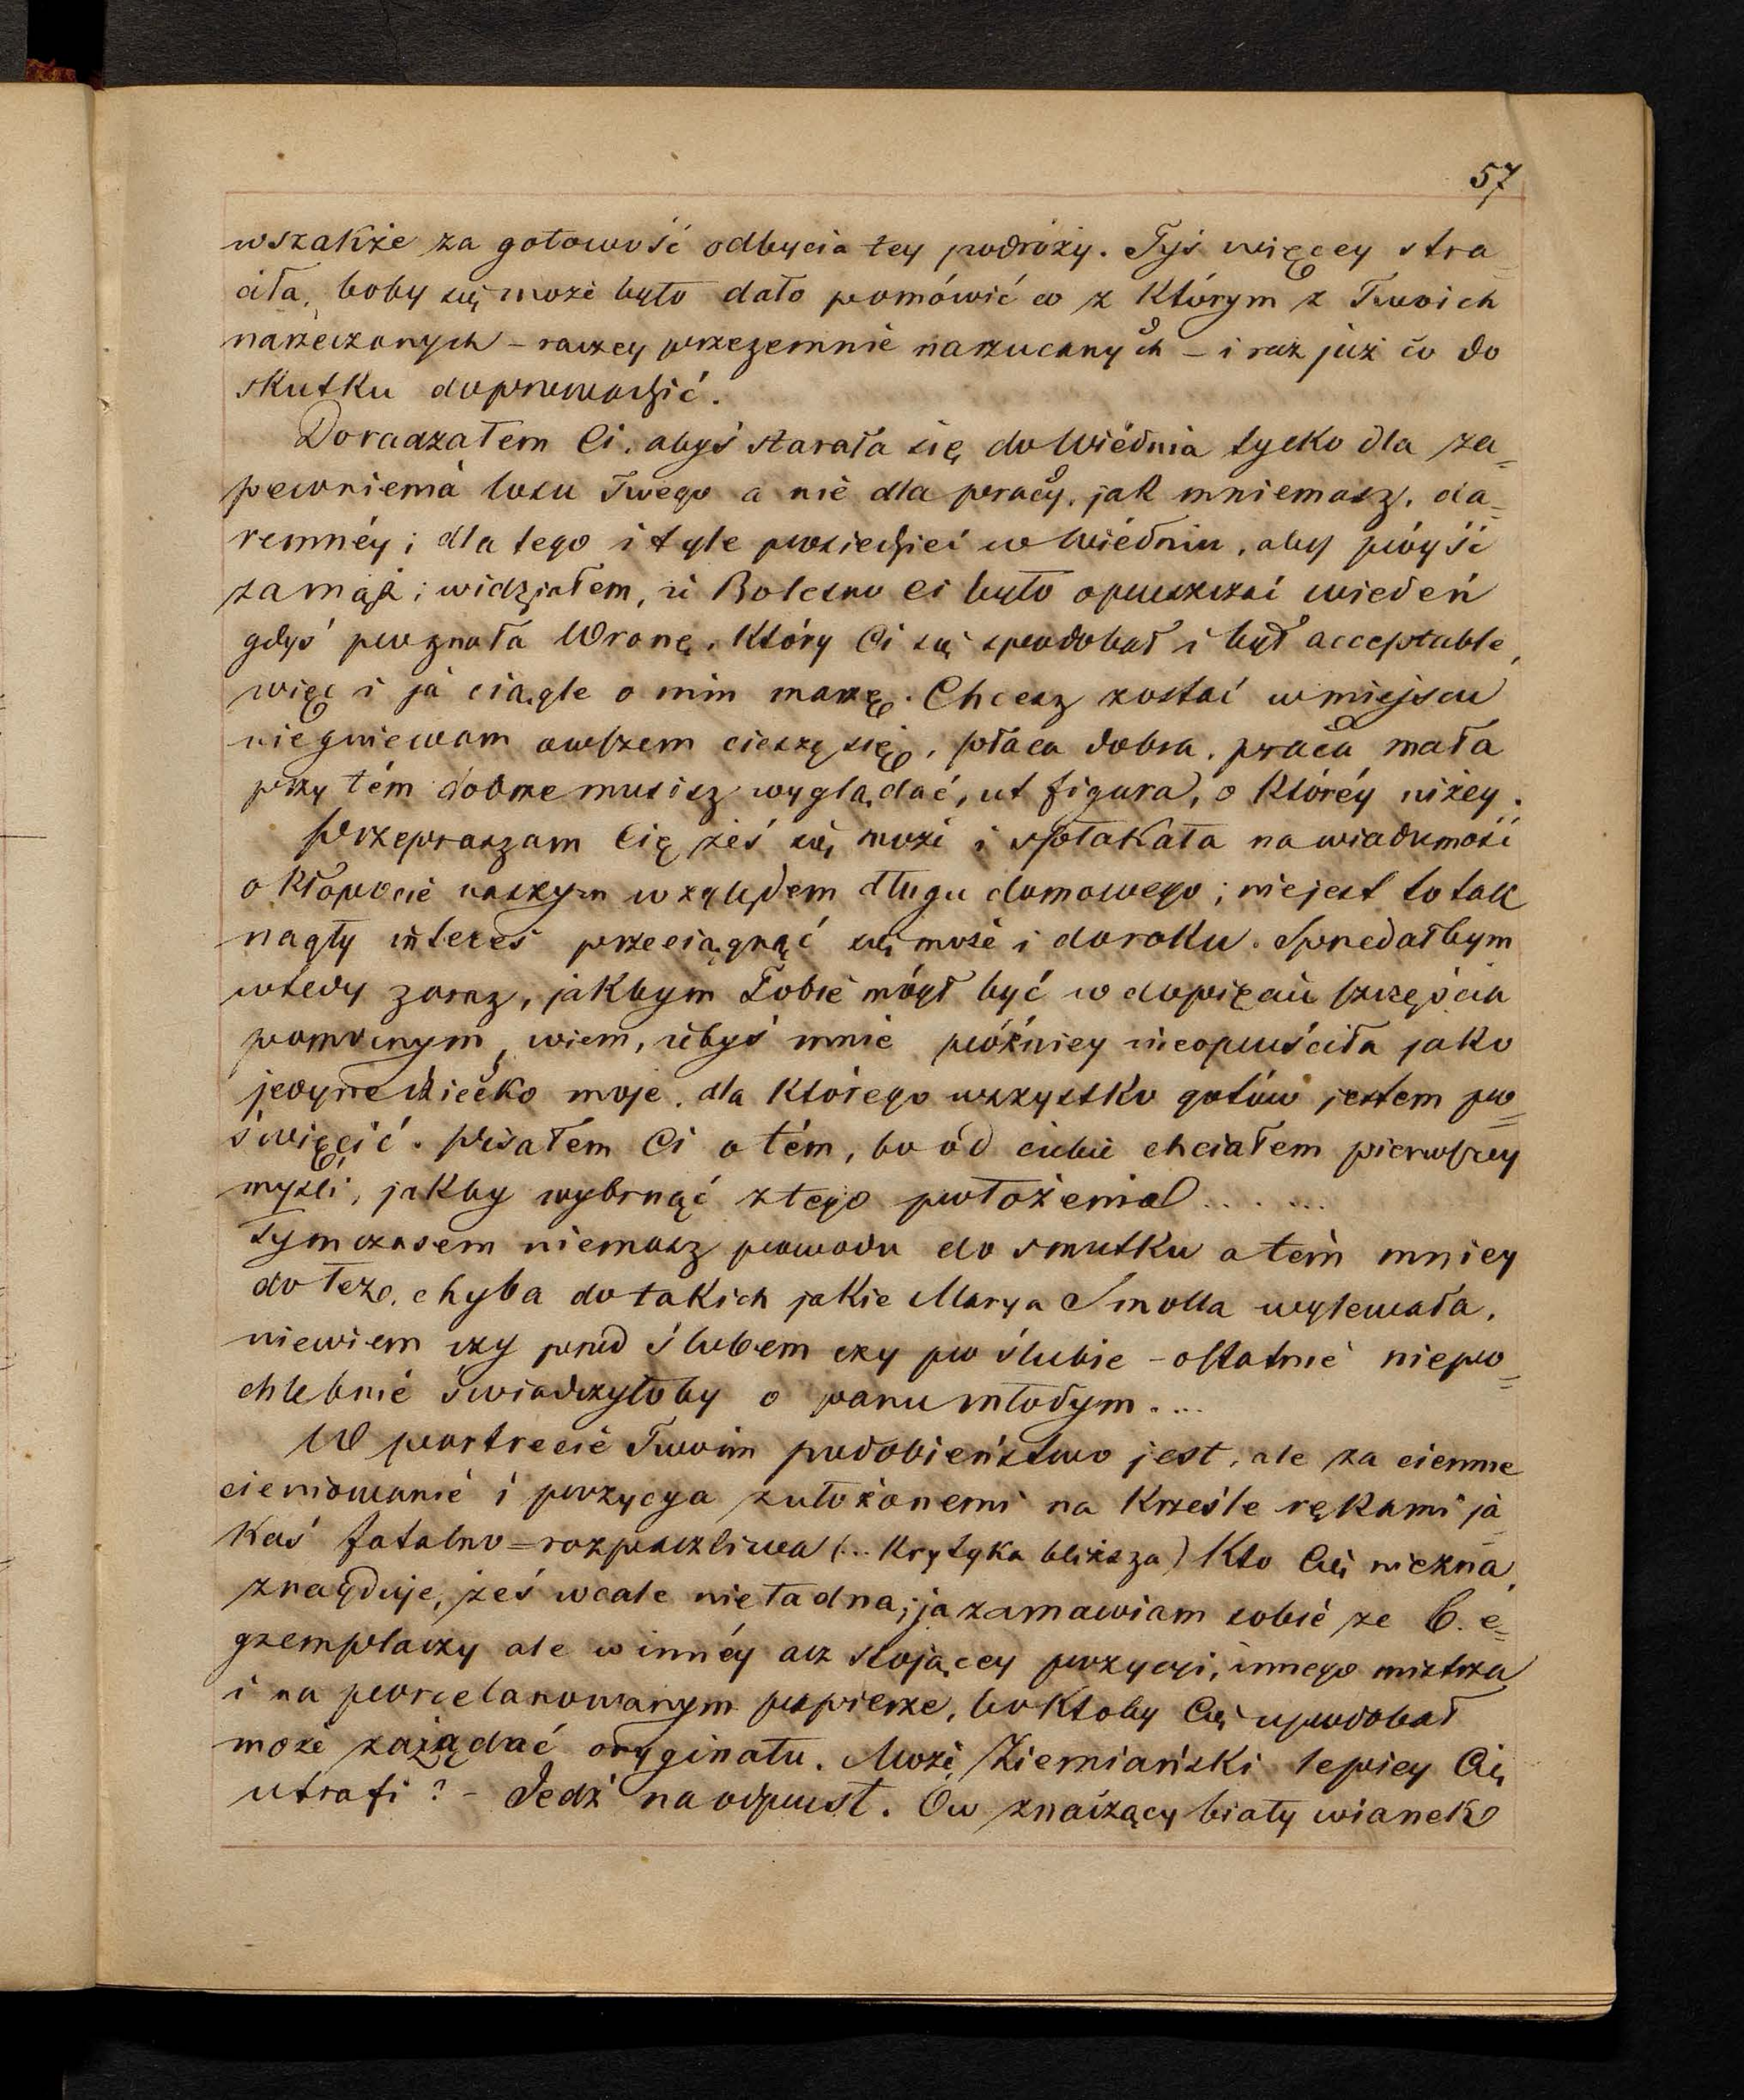 57
wszakże za gotowość odbycia tey podróży. Tyś więcey stra=
ciła, boby się może było dało pomówić co z którym z Twoich
narzeczonych – raczey przezemnie narzucanych – i raz już co do
skutku doprowadzić.
Doradzałem Ci, abyś starała się do Wiédnia tylko dla za=
pewnienia losu Twego a nie dla pracy, jak mniemasz, da=
remnéy; dla tego i tyle posiedzieć w Wiédniu, aby póyść
zamąż; widziałem, iż Bolesno Ci było opuszczać Wiedeń
gdyś poznała Wronę, który Ci się spodobał i był acceptable,
więc i ja ciągle o nim marzę. Chcesz zostać w miejscu
niegniewam owszem cieszę się, płaca dobra, praca mała
przy tém dobrze musisz wyglądać, ut figura, o któréy niżey.
Przepraszam Cię żeś się może i spłakała na wiadomość
o kłopocie naszym względem długu domowego; niejest to tak
nagły interes przeciągnąć się może i do roku. Sprzedałbym
wtedy zaraz, jakbym Tobie mógł być w dopięciu szczęścia
pomocnym, wiem, iżbyś mnie późniey nieopuściła jako
jedyne dziecko moje, dla którego wszystko gotów jestem po=
święcić. Pisałem Ci o tém, bo od ciebie chciałem pierwszey
myśli, jakby wybrnąć z tego położenia . . . . . . .
Tymczasem niemasz powodu do smutku a tém mniey
do łez, chyba do takich jakie Marya Smolla wylewała,
niewiem czy przed ślubem czy po ślubie – ostatnie niepo=
chlebnie świadczyłoby o panu młodym....
W portrecie Twoim podobieństwo jest, ale za ciemne
cieniowanie i pozycya z ułożonemi na krześle rękami ja=
kaś fatalno=rozpaczliwa (... Krytyka bliższa) Kto Cię niezna,
znayduje, żeś wcale nieładna; ja zamawiam sobie ze 6. e=
gzemplarzy ale w innéy acz stojącey pozycyi, innego mistrza
i na porcelanowanym papierze, bo ktoby Cię upodobał
może zażądać oryginału. Może Ziemiański lepiey Cię
utrafi? – Jedź na odpust. Ów znaczący biały wianek